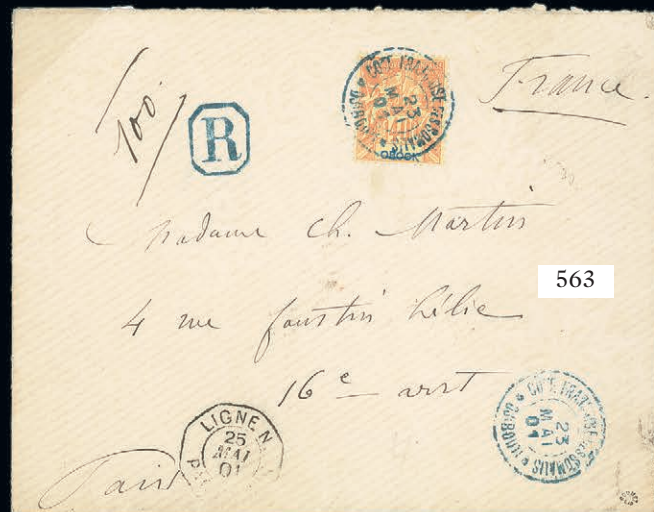 France
100
R
COTE FRANÇAISE DES SOMALIS
23
MAI
01
DJIBOUTI
OBOCK
Madame Ch. Martin
563
4 rue faustin hélie
16e arrt
Paris
LIGNE N
25
MAI
01
COTE FRANÇAISE DES SOMALIS
23
MAI
01
DJIBOUTI